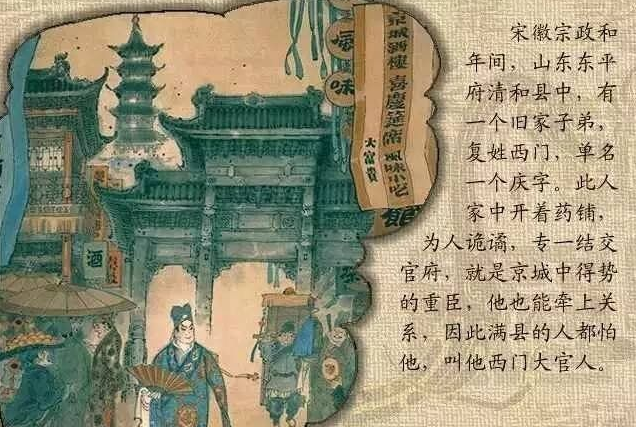 宋徽宗政和
年间，山东东平
府清和县中，有
一个旧家子弟，
复姓西门，单名
一个庆字。此人
家中开着药铺，
为人诡谲，专一结交
官府，就是京城中得势
的重臣，他也能牵上关
系，因此满县的人都怕
他，叫他西门大官人。
喜慶筵席
風味小吃
大富貴
味
酒